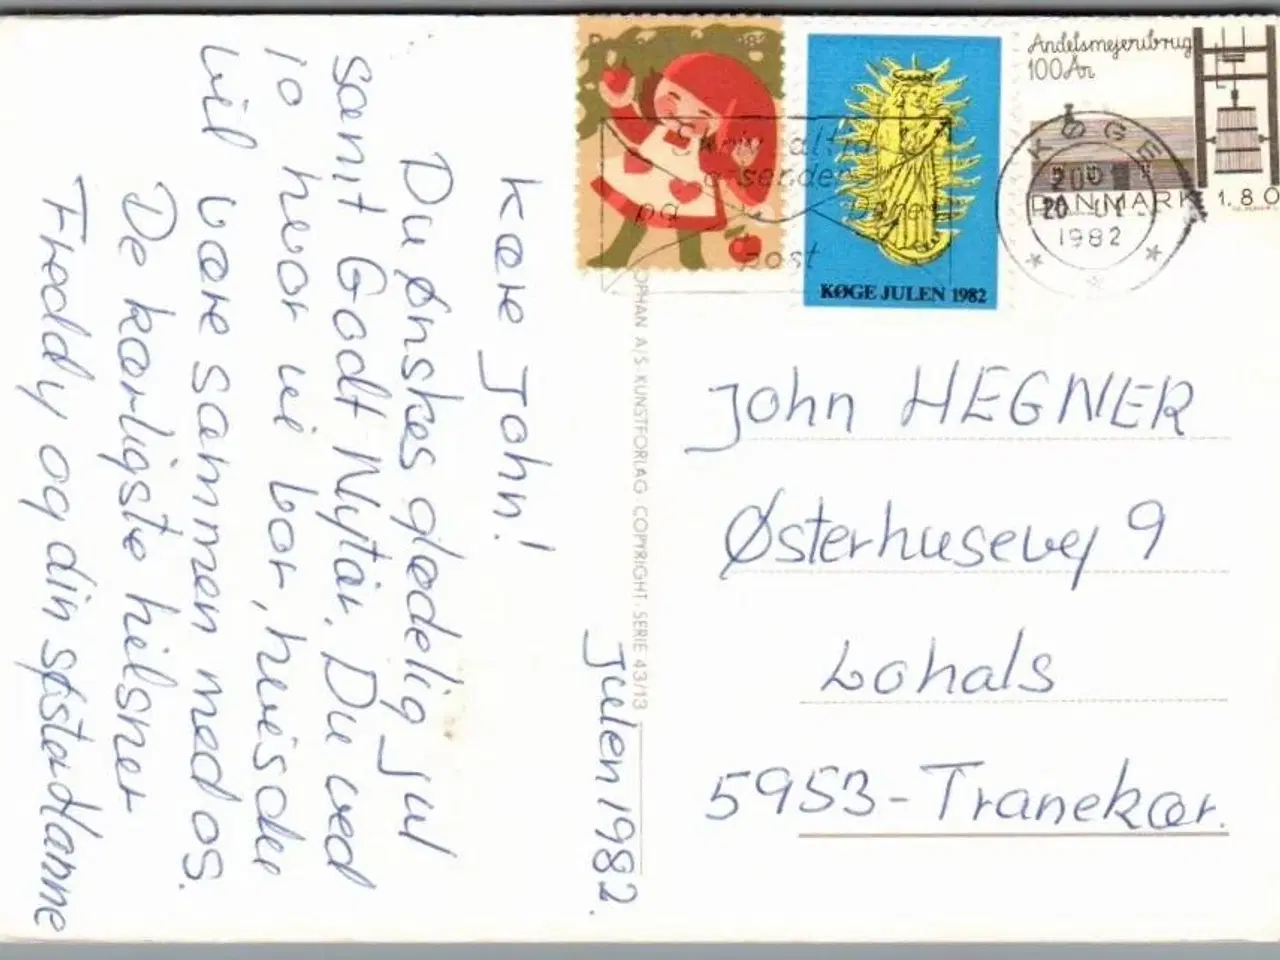 Julen 1982.
Kære John!
Du ønskes glædelig jul
samt Godt Nytår. Du ved
jo hvor vi bor, hvis du
vil være sammen med os.
De kærligste hilsner
Freddy og din søster Hanne
OPHAN A/S · KUNSTFORLAG COPYRIGHT · SERIE 43/13
KØGE JULEN 1982
Andelsmejeribrug
100 År
DANMARK 1.80
KØGE
1982
Skriv altid
afsender
på
post
John HEGNER
Østerhusevej 9
Lohals
5953-Tranekær.